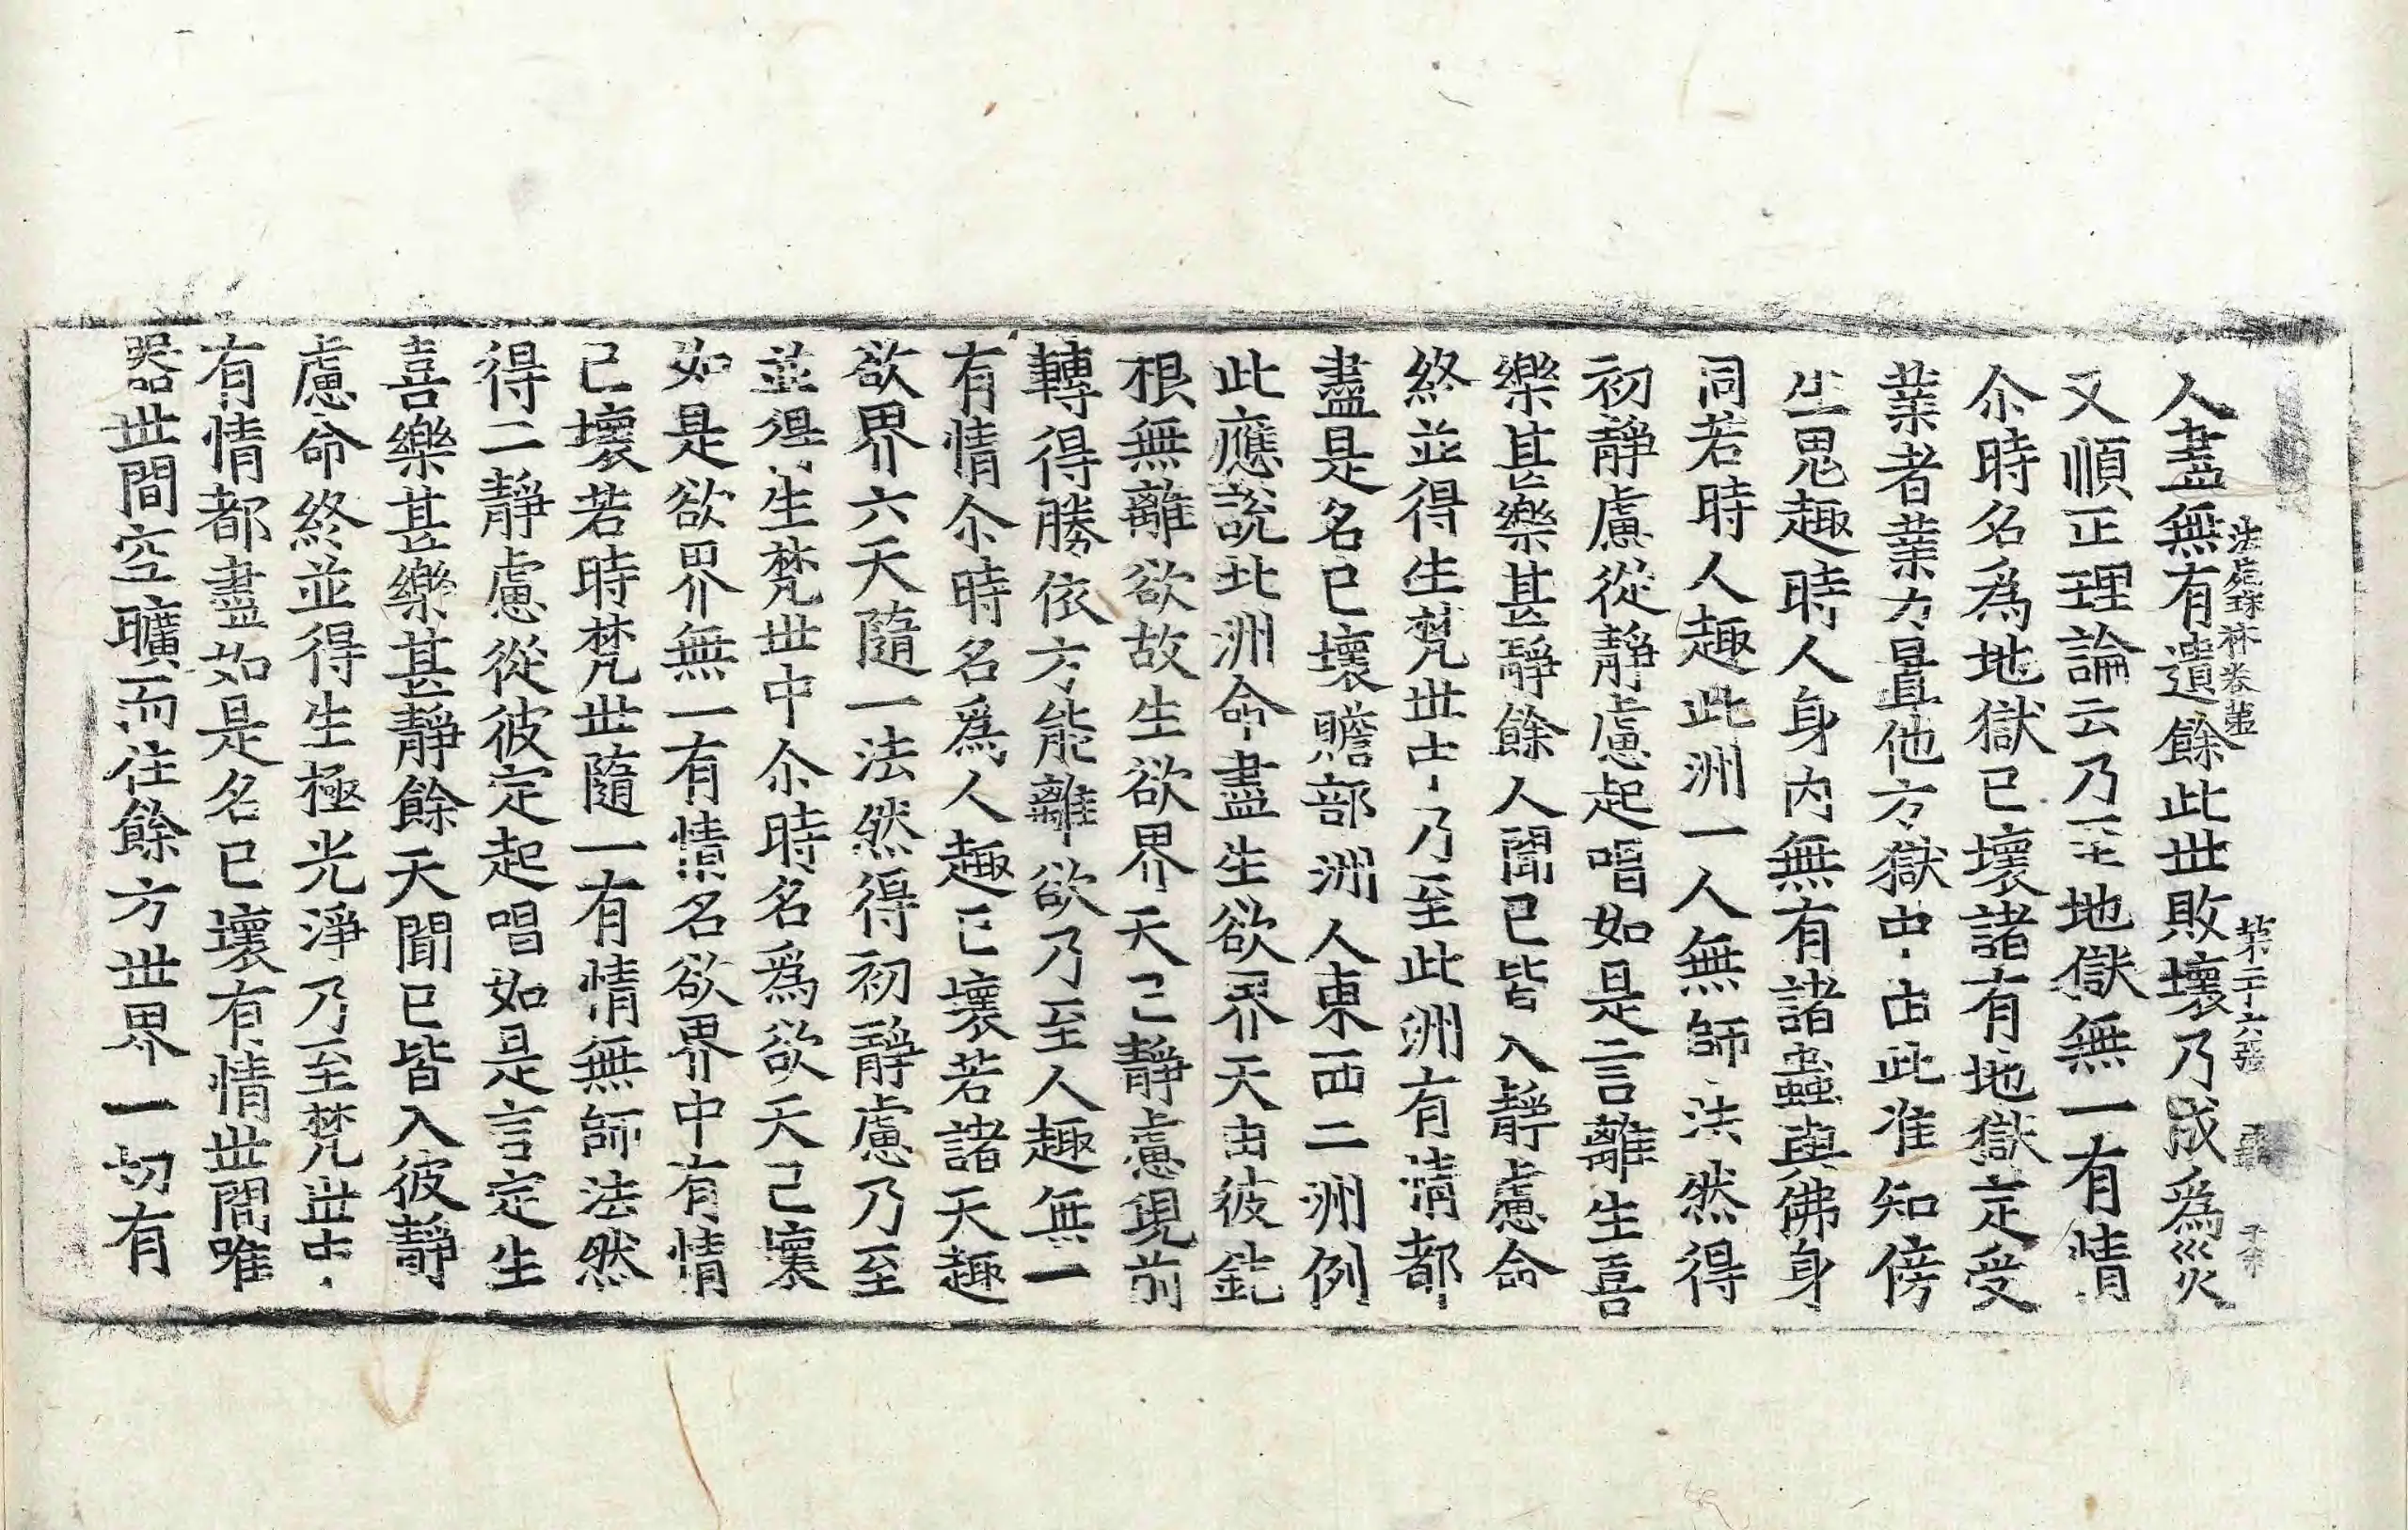 人盡無有遺餘此世敗壞乃成為災
法苑珠林卷苐 苐二十六張
又順正理論云乃至地獄無一有情
尒時名為地獄已壞諸有地獄定受
業者業力置他方獄中由此准知傍
生鬼趣時人身內無有諸蟲與佛身
同若時人趣此洲一人無師法然得
初靜慮從靜慮起唱如是言離生喜
樂甚樂甚靜餘人聞已皆入靜慮命
終並得生梵世中乃至此洲有情都
盡是名已壞贍部洲人東西二洲例
此應說北洲命盡生欲界天由彼鈍
根無離欲故生欲界天已靜慮現前
轉得勝依方能離欲乃至人趣無一
有情尒時名為人趣已壞若諸天趣
欲界六天隨一法然得初靜慮乃至
並得生梵世中尒時名為欲天已壞
如是欲界無一有情名欲界中有情
已壞若時梵世隨一有情無師法然
得二靜慮從彼定起唱如是言定生
喜樂甚樂甚靜餘天聞已皆入彼靜
慮命終並得生極光淨乃至梵世中
有情都盡如是名已壞有情世間唯
器世間空曠而住餘方世界一切有